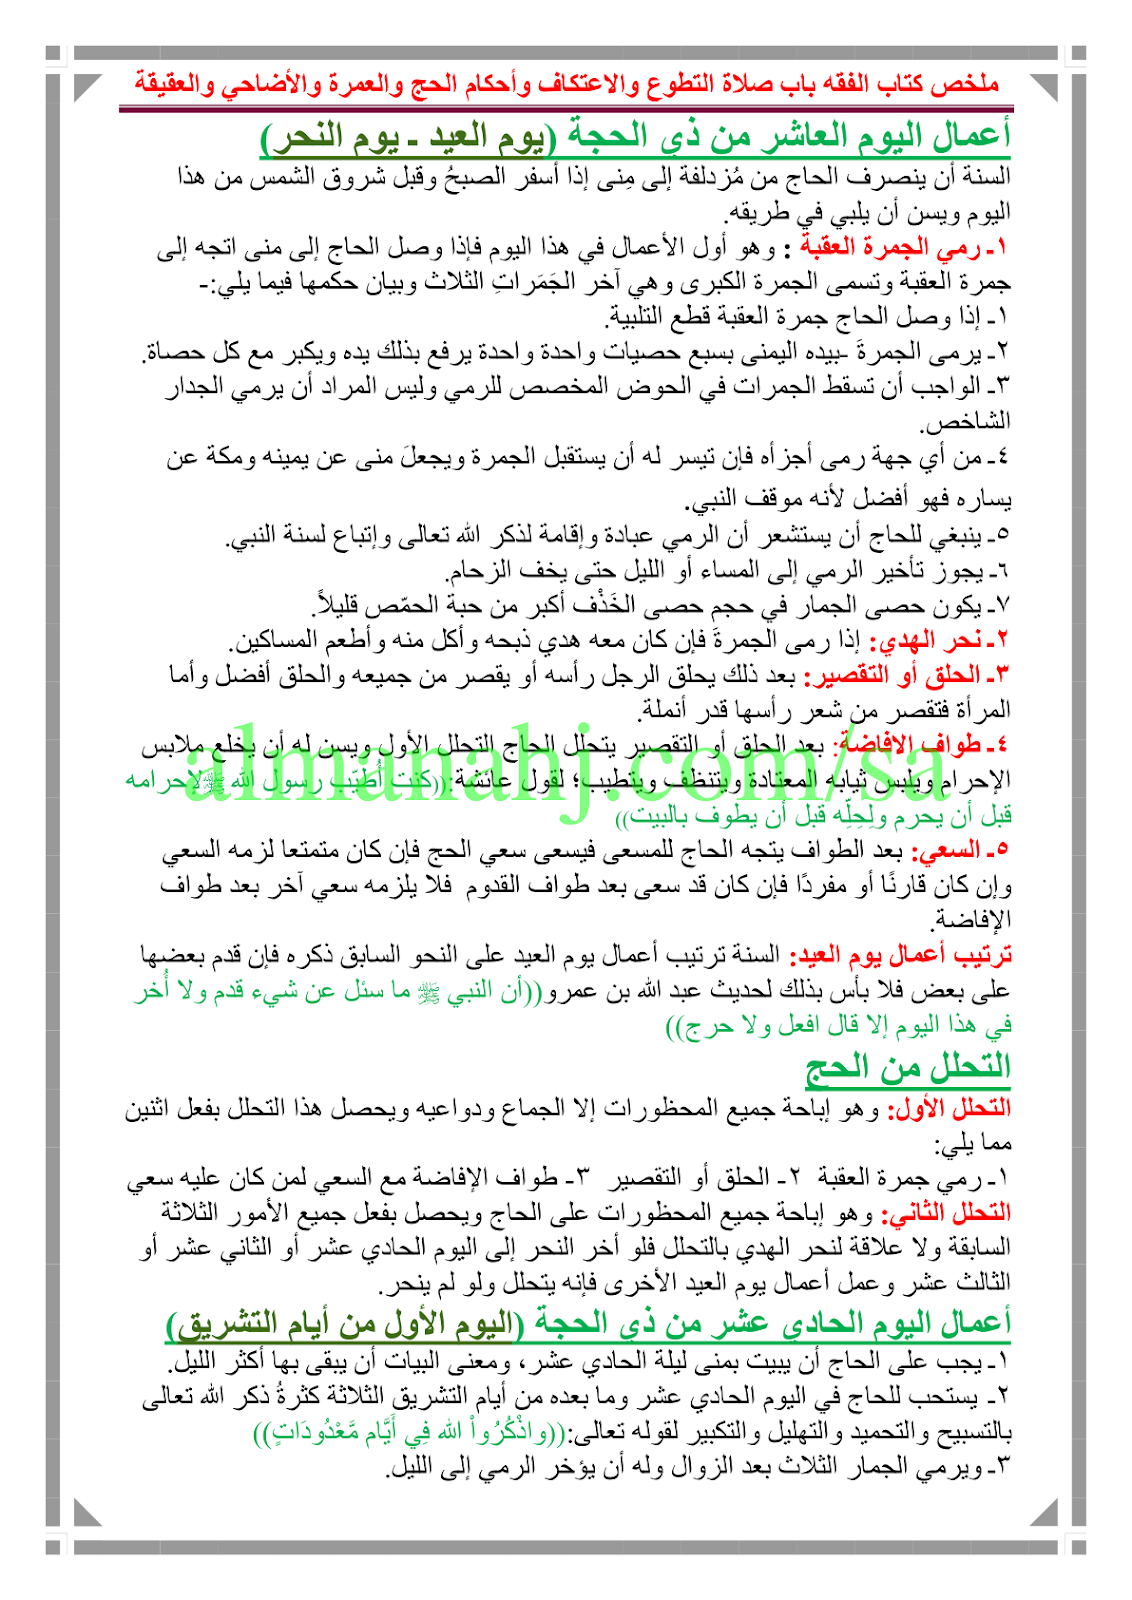 ملخص كتاب الفقه باب صلاة التطوع والاعتكاف وأحكام الحج والعمرة والأضاحي والعقيقة
أعمال اليوم العاشر من ذي الحجة (يوم العيد ـ يوم النحر)
السنة أن ينصرف الحاج من مُزدلفة إلى مِنى إذا أسفر الصبحُ وقبل شروق الشمس من هذا
اليوم ويسن أن يلبي في طريقه.
١ـ رمي الجمرة العقبة : وهو أول الأعمال في هذا اليوم فإذا وصل الحاج إلى منى اتجه إلى
جمرة العقبة وتسمى الجمرة الكبرى وهي آخر الجَمَراتِ الثلاث وبيان حكمها فيما يلي:-
١ـ إذا وصل الحاج جمرة العقبة قطع التلبية.
٢ـ يرمى الجمرةَ -بيده اليمنى بسبع حصيات واحدة واحدة يرفع بذلك يده ويكبر مع كل حصاة.
٣ـ الواجب أن تسقط الجمرات في الحوض المخصص للرمي وليس المراد أن يرمي الجدار
الشاخص.
٤ـ من أي جهة رمى أجزأه فإن تيسر له أن يستقبل الجمرة ويجعلَ منى عن يمينه ومكة عن
يساره فهو أفضل لأنه موقف النبي.
٥ـ ينبغي للحاج أن يستشعر أن الرمي عبادة وإقامة لذكر الله تعالى وإتباع لسنة النبي.
٦ـ يجوز تأخير الرمي إلى المساء أو الليل حتى يخف الزحام.
٧ـ يكون حصى الجمار في حجم حصى الخَذْف أكبر من حبة الحمّص قليلاً.
٢ـ نحر الهدي: إذا رمى الجمرةَ فإن كان معه هدي ذبحه وأكل منه وأطعم المساكين.
٣ـ الحلق أو التقصير: بعد ذلك يحلق الرجل رأسه أو يقصر من جميعه والحلق أفضل وأما
المرأة فتقصر من شعر رأسها قدر أنملة.
٤ـ طواف الافاضة: بعد الحلق أو التقصير يتحلل الحاج التحلل الأول ويسن له أن يخلع ملابس
الإحرام ويلبس ثيابه المعتادة ويتنظف ويتطيب؛ لقول عائشة:((كنت أُطيّب رسول الله ﷺ لإحرامه
قبل أن يحرم ولِحِلِّه قبل أن يطوف بالبيت))
almanahj.com/sa
٥ـ السعي: بعد الطواف يتجه الحاج للمسعى فيسعى سعي الحج فإن كان متمتعا لزمه السعي
وإن كان قارنًا أو مفردًا فإن كان قد سعى بعد طواف القدوم فلا يلزمه سعي آخر بعد طواف
الإفاضة.
ترتيب أعمال يوم العيد: السنة ترتيب أعمال يوم العيد على النحو السابق ذكره فإن قدم بعضها
على بعض فلا بأس بذلك لحديث عبد الله بن عمرو((أن النبي ﷺ ما سئل عن شيء قدم ولا أُخر
في هذا اليوم إلا قال افعل ولا حرج))
التحلل من الحج
التحلل الأول: وهو إباحة جميع المحظورات إلا الجماع ودواعيه ويحصل هذا التحلل بفعل اثنين
مما يلي:
١ـ رمي جمرة العقبة ٢ـ الحلق أو التقصير ٣- طواف الإفاضة مع السعي لمن كان عليه سعي
التحلل الثاني: وهو إباحة جميع المحظورات على الحاج ويحصل بفعل جميع الأمور الثلاثة
السابقة ولا علاقة لنحر الهدي بالتحلل فلو أخر النحر إلى اليوم الحادي عشر أو الثاني عشر أو
الثالث عشر وعمل أعمال يوم العيد الأخرى فإنه يتحلل ولو لم ينحر.
أعمال اليوم الحادي عشر من ذي الحجة (اليوم الأول من أيام التشريق)
١ـ يجب على الحاج أن يبيت بمنى ليلة الحادي عشر، ومعنى البيات أن يبقى بها أكثر الليل.
٢ـ يستحب للحاج في اليوم الحادي عشر وما بعده من أيام التشريق الثلاثة كثرةُ ذكر الله تعالى
بالتسبيح والتحميد والتهليل والتكبير لقوله تعالى:((واذْكُرُواْ الله فِي أَيَّام مَّعْدُودَاتٍ))
٣ـ ويرمي الجمار الثلاث بعد الزوال وله أن يؤخر الرمي إلى الليل.